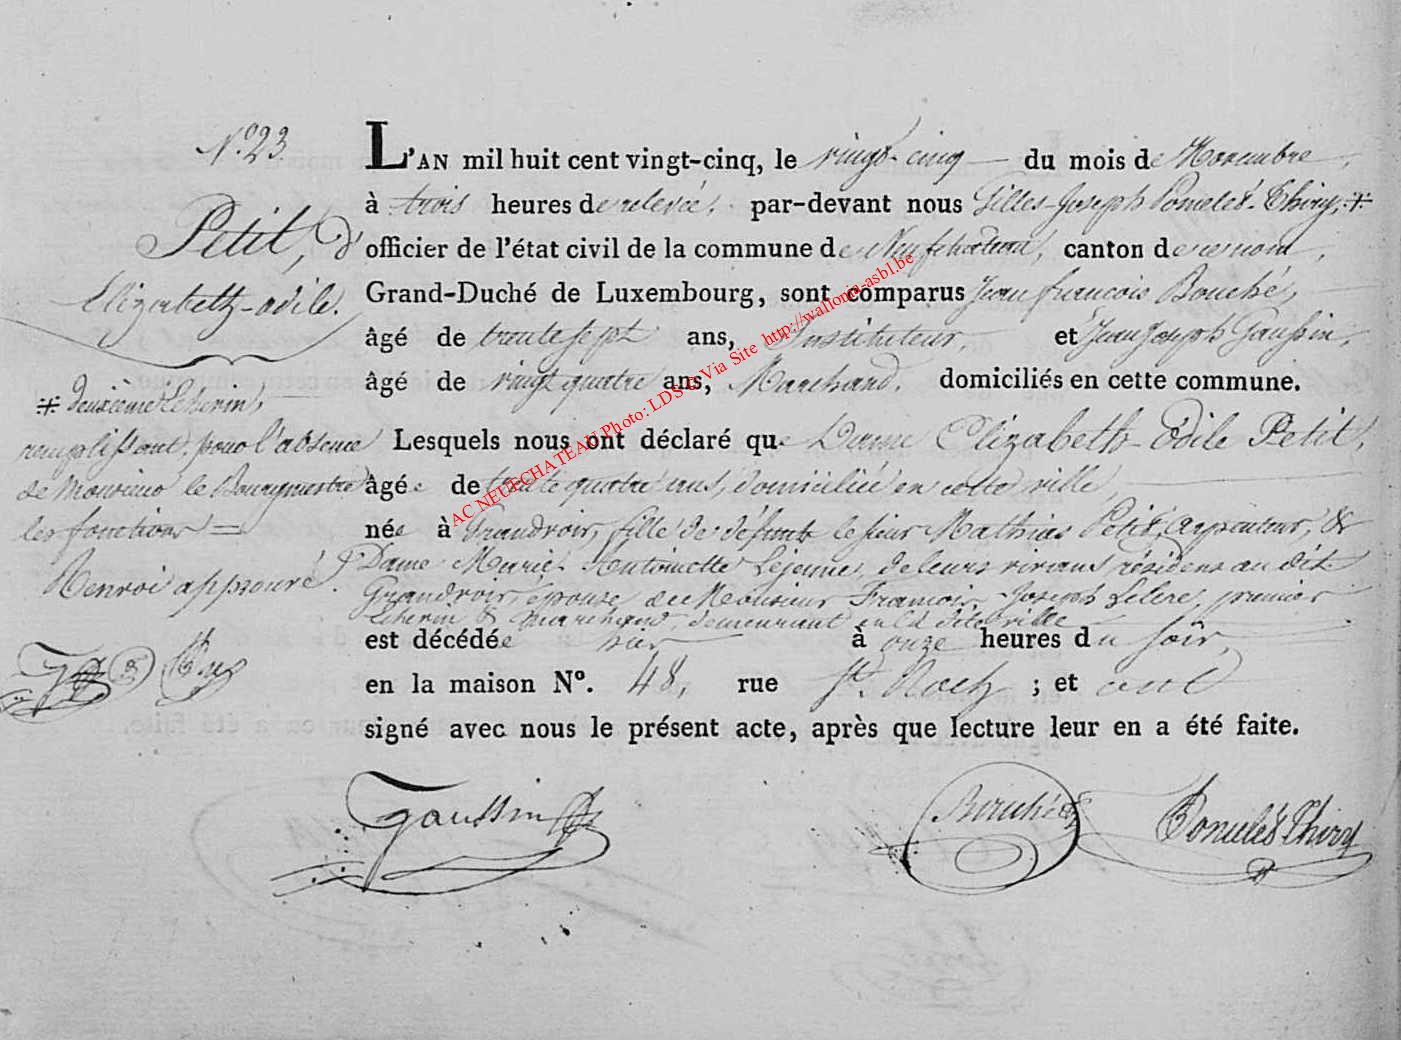 N.° 23
Petit, d'
Elizabeth-odile.
L'AN mil huit cent vingt-cinq, le vingt-cinq du mois de Novembre,
à trois heures de relevée, par-devant nous Gilles-Joseph Thiry, *
officier de l'état civil de la commune de Neufchateau, canton de ce nom,
Grand-Duché de Luxembourg, sont comparus Jean francois Bouché,
âgé de trente sept ans, Instituteur, et Jean Joseph Gaussin,
âgé de vingt quatre ans, Marchand, domiciliés en cette commune.
Lesquels nous ont déclaré que Dame Elizabeth Odile Petit,
âgée de trente quatre ans, domiciliée en cette ville,
née à Grandvoir, fille de défunt le sieur Mathias Petit, Arpenteur, &
Dame Marie Antoinette Lejeune, de leurs vivans résidens au dit
Grandvoir, épouse de Monsieur Francois Joseph Leclerc, premier
Echevin & Marchand, demeurant en la dite ville
est décédée hier à onze heures du soir,
en la maison N°. 48, rue St. Roch ; et ont
signé avec nous le présent acte, après que lecture leur en a été faite.
* deuxième Echevin,
remplissant, pour l'absence
de Monsieur le Bourgmestre
les fonctions =
Renvoi approuvé.
Gaussin Bouché Thiry
AC NEUFCHATEAU Photo: LDS © Via Site http://wallonia-asbl.be